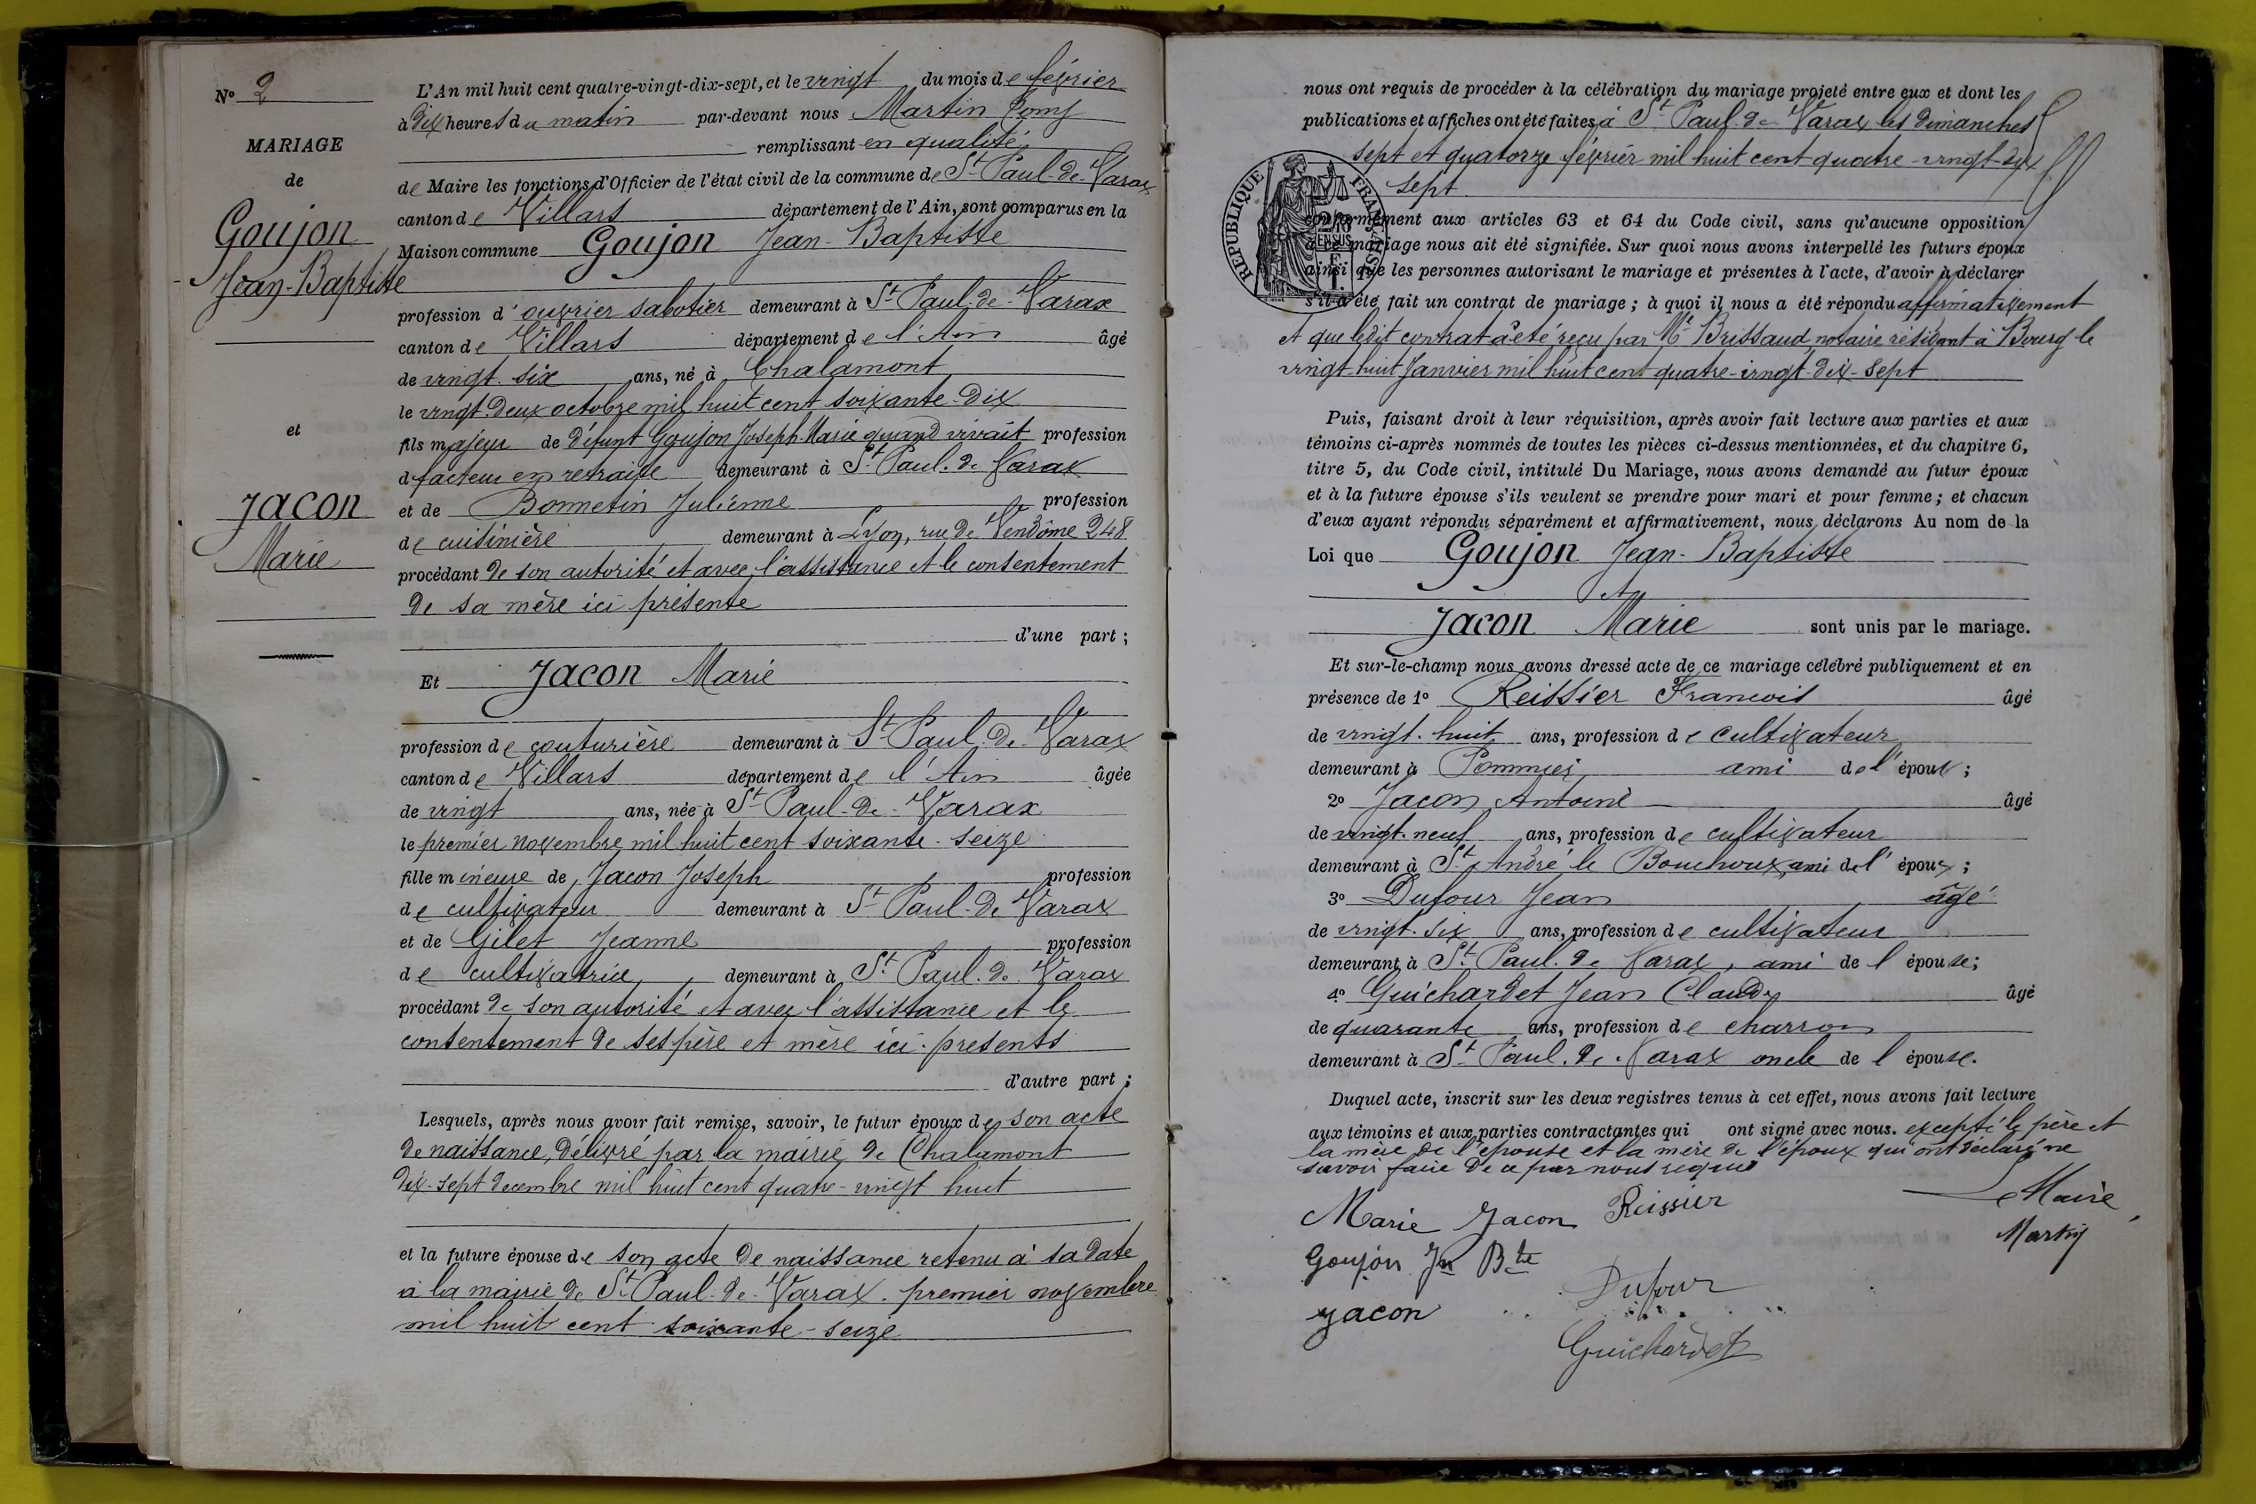 N° 2
MARIAGE
de
Goujon
Jean-Baptiste
et
Jacon
Marie
L'An mil huit cent quatre-vingt-dix-sept, et le vingt du mois de février
à dix heures du matin par-devant nous Martin
remplissant en qualité
de Maire les fonctions d'Officier de l'état civil de la commune de St Paul-de-Varax
canton de Villars département de l'Ain, sont comparus en la
Maison commune Goujon Jean-Baptiste
profession d'ouvrier sabotier demeurant à St Paul-de-Varax
canton de Villars département de l'Ain âgé
de vingt-six ans, né à Chalamont
le vingt-deux octobre mil huit cent soixante-dix
fils majeur de défunt Goujon Joseph-Marie quand vivait profession
de facteur en retraite demeurant à St Paul-de-Varax
et de Bonnetin Julienne profession
de cuisinière demeurant à Lyon, rue de Vendôme 248
procédant de son autorité et avec l'assistance et le consentement
de sa mère ici présente
d'une part ;
Et Jacon Marie
profession de couturière demeurant à St Paul-de-Varax
canton de Villars département de l'Ain âgée
de vingt ans, née à St Paul-de-Varax
le premier novembre mil huit cent soixante-seize
fille mineure de Jacon Joseph profession
de cultivateur demeurant à St Paul-de-Varax
et de Gilet Jeanne profession
de cultivatrice demeurant à St Paul-de-Varax
procédant de son autorité et avec l'assistance et le
consentement de ses père et mère ici présents
d'autre part ;
Lesquels, après nous avoir fait remise, savoir, le futur époux de son acte
de naissance, délivré par la mairie de Chalamont
dix-sept decembre mil huit cent quatre-vingt huit
et la future épouse de son acte de naissance retenu à sa date
à la mairie de St Paul-de-Varax. premier novembre
mil huit cent soixante-seize
nous ont requis de procéder à la célébration du mariage projeté entre eux et dont les
publications et affiches ont été faites à St Paul-de-Varax les dimanches
sept et quatorze février mil huit cent quatre-vingt-dix
sept
REPUBLIQUE FRANÇAISE
conformément aux articles 63 et 64 du Code civil, sans qu'aucune opposition
à ce mariage nous ait été signifiée. Sur quoi nous avons interpellé les futurs époux
ainsi que les personnes autorisant le mariage et présentes à l'acte, d'avoir à déclarer
s'il a été fait un contrat de mariage ; à quoi il nous a été répondu affirmativement
et que ledit contrat a été reçu par Me Brissaud, notaire résidant à Bourg le
vingt-huit Janvier mil huit cent quatre-vingt-dix-sept
Puis, faisant droit à leur réquisition, après avoir fait lecture aux parties et aux
témoins ci-après nommés de toutes les pièces ci-dessus mentionnées, et du chapitre 6,
titre 5, du Code civil, intitulé Du Mariage, nous avons demandé au futur époux
et à la future épouse s'ils veulent se prendre pour mari et pour femme ; et chacun
d'eux ayant répondu séparément et affirmativement, nous déclarons Au nom de la
Loi que Goujon Jean-Baptiste
et
Jacon Marie sont unis par le mariage.
Et sur-le-champ nous avons dressé acte de ce mariage célébré publiquement et en
présence de 1° Reissier Francois âgé
de vingt-huit ans, profession de cultivateur
demeurant à ami de l'époux ;
2° Jacon Antoine âgé
de vingt-neuf ans, profession de cultivateur
demeurant à St André le Bouchoux, ami de l'époux ;
3° Dufour Jean âgé
de vingt-six ans, profession de cultivateur
demeurant à St Paul-de-Varax, ami de l'épouse ;
4° Guichardet Jean Claude âgé
de quarante ans, profession de charron
demeurant à St Paul-de-Varax oncle de l'épouse.
Duquel acte, inscrit sur les deux registres tenus à cet effet, nous avons fait lecture
aux témoins et aux parties contractantes qui ont signé avec nous. excepté le père et
la mère de l'épouse et la mère de l'époux qui ont déclaré ne
savoir faire de ce par nous requis
Marie Jacon Reissier Le Maire
Goujon Jn Bte Martin
Jacon Dufour
Guichardet